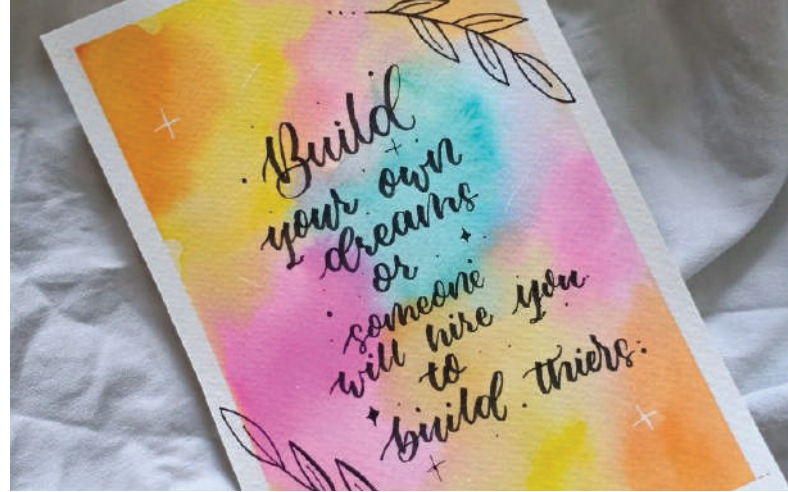 Build
your own
dreams
or
someone
will hire you
to
build thiers.